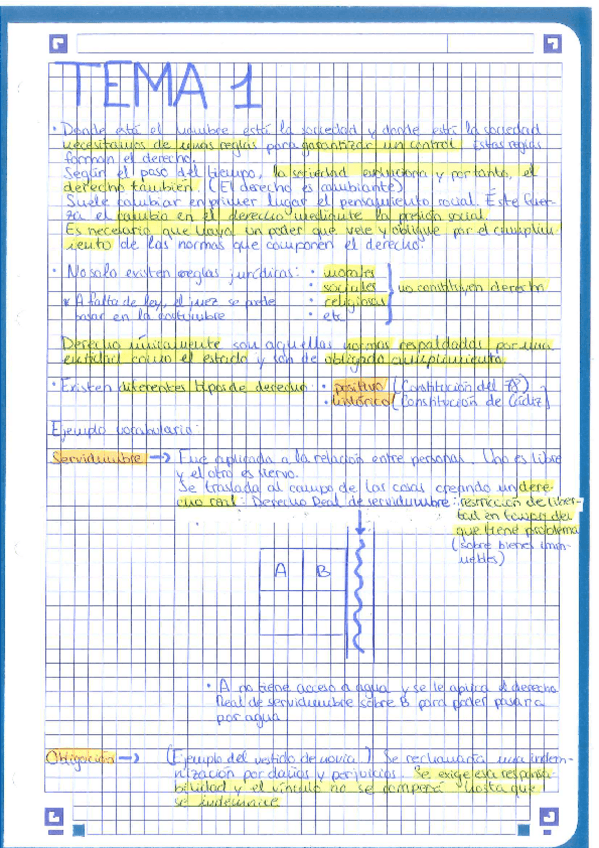 TEMA 1
· Donde está el hombre está la sociedad y donde está la sociedad
necesitamos de unas reglas para garantizar un control. Estas reglas
forman el derecho.
Según el paso del tiempo, la sociedad evoluciona y por tanto, el
derecho también. (El derecho es cambiante)
Suele cambiar en primer lugar el pensamiento social. Éste fuer-
za el cambio en el derecho mediante la presión social.
Es necesario que haya un poder que vele y obligue por el cumplim-
iento de las normas que componen el derecho.
· No solo existen reglas jurídicas: · morales
· sociales
no constituyen derecho
* A falta de ley, el juez se puede · religiosas
basar en la costumbre · etc
Derecho únicamente son aquellas normas respaldadas por una
entidad como el estado y son de obligado cumplimiento.
· Existen diferentes tipos de derecho: · positivo (Constitución del 78)
· histórico (Constitución de Cádiz)
Ejemplo vocabulario:
Servidumbre → Fue aplicada a la relación entre personas. Uno es libre
y el otro es siervo.
Se traslada al campo de las cosas creando un dere-
cho real: Derecho Real de servidumbre: restricción de liber-
tad en campo del
que tiene problema
(sobre bienes inmu-
uebles)
A B
· A no tiene acceso a agua y se le aplica el derecho
Real de servidumbre sobre B para poder pasar a
por agua
Obligación → (Ejemplo del vestido de novia) Se reclamaría una indem-
nización por daños y perjuicios. Se exige esa responsa-
bilidad y el vínculo no se romperá hasta que
se indemnice